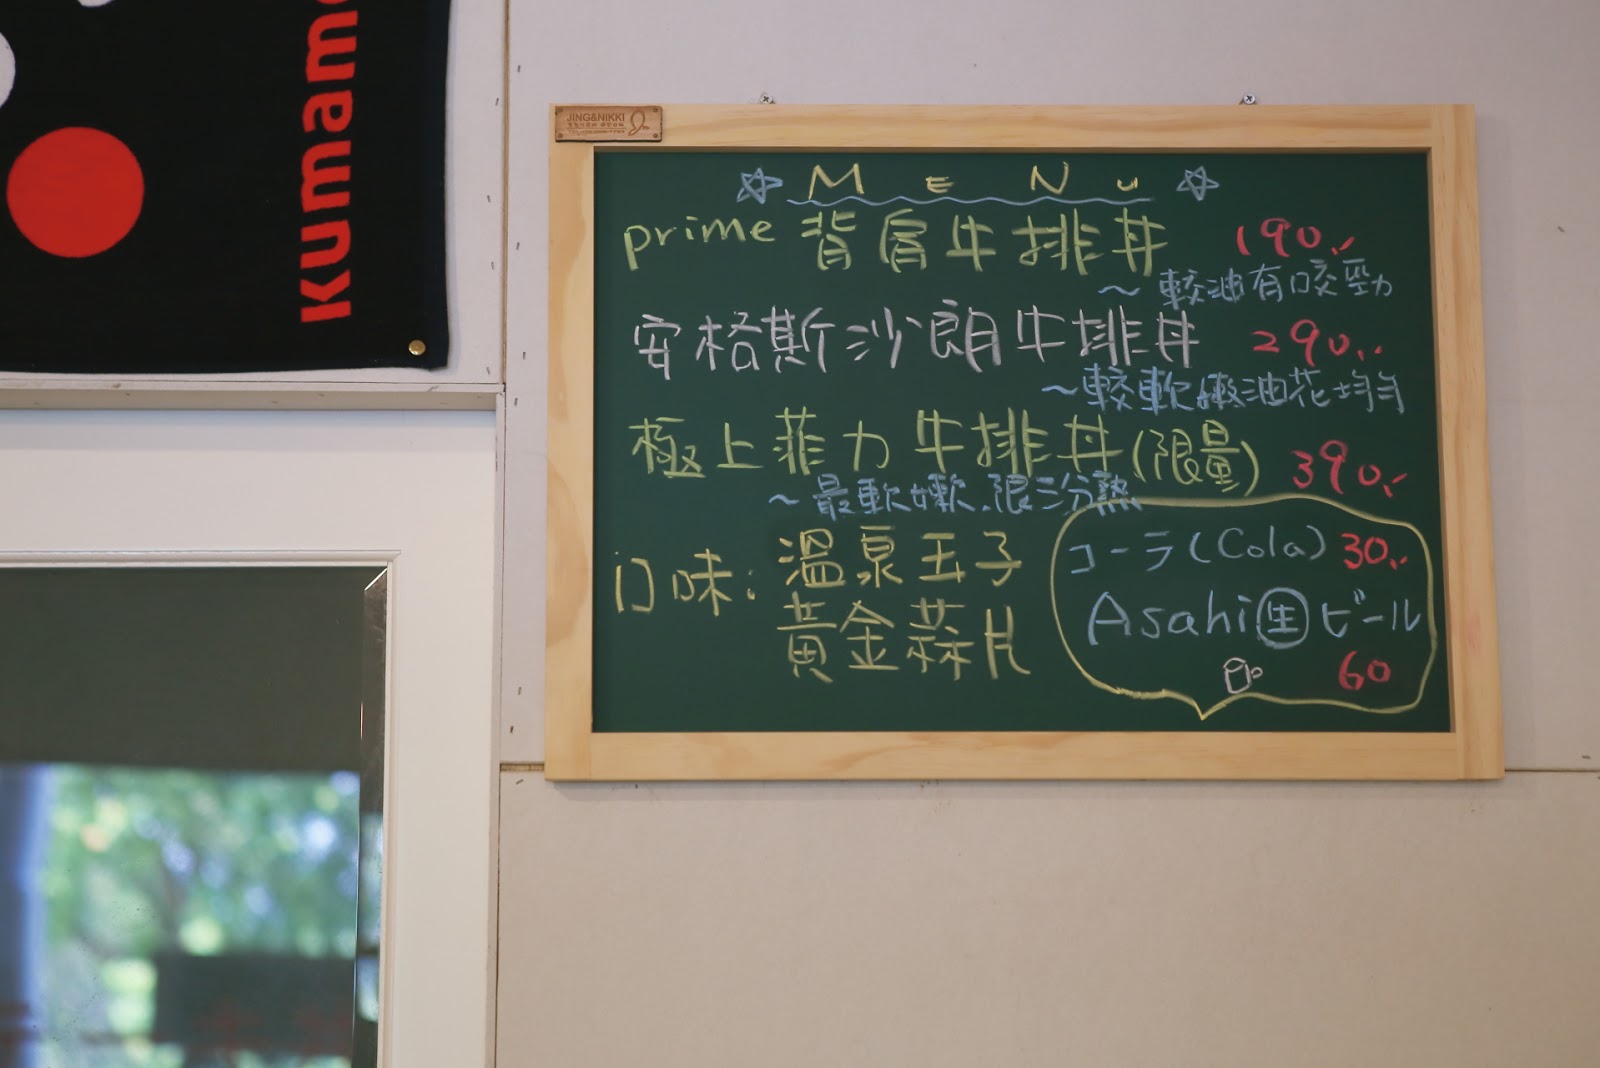 kumamo
JING&NIKKI
MENU
prime 背肩牛排丼 190.-
~較油有口交勁
安格斯沙朗牛排丼 290.-
~較軟嫩油花均勻
極上菲力牛排丼(限量) 390.-
~最軟嫩.限三分熟
口味:溫泉玉子
黃金蒜片
コーラ(Cola) 30.-
Asahi生ビール
60